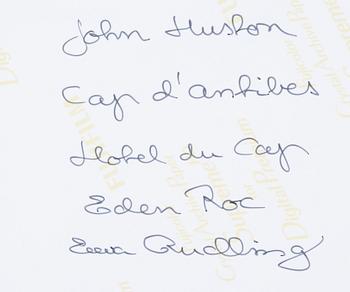 John Huston
Cap d'antibes
Hotel du Cap
Eden Roc
Eewa Rudling